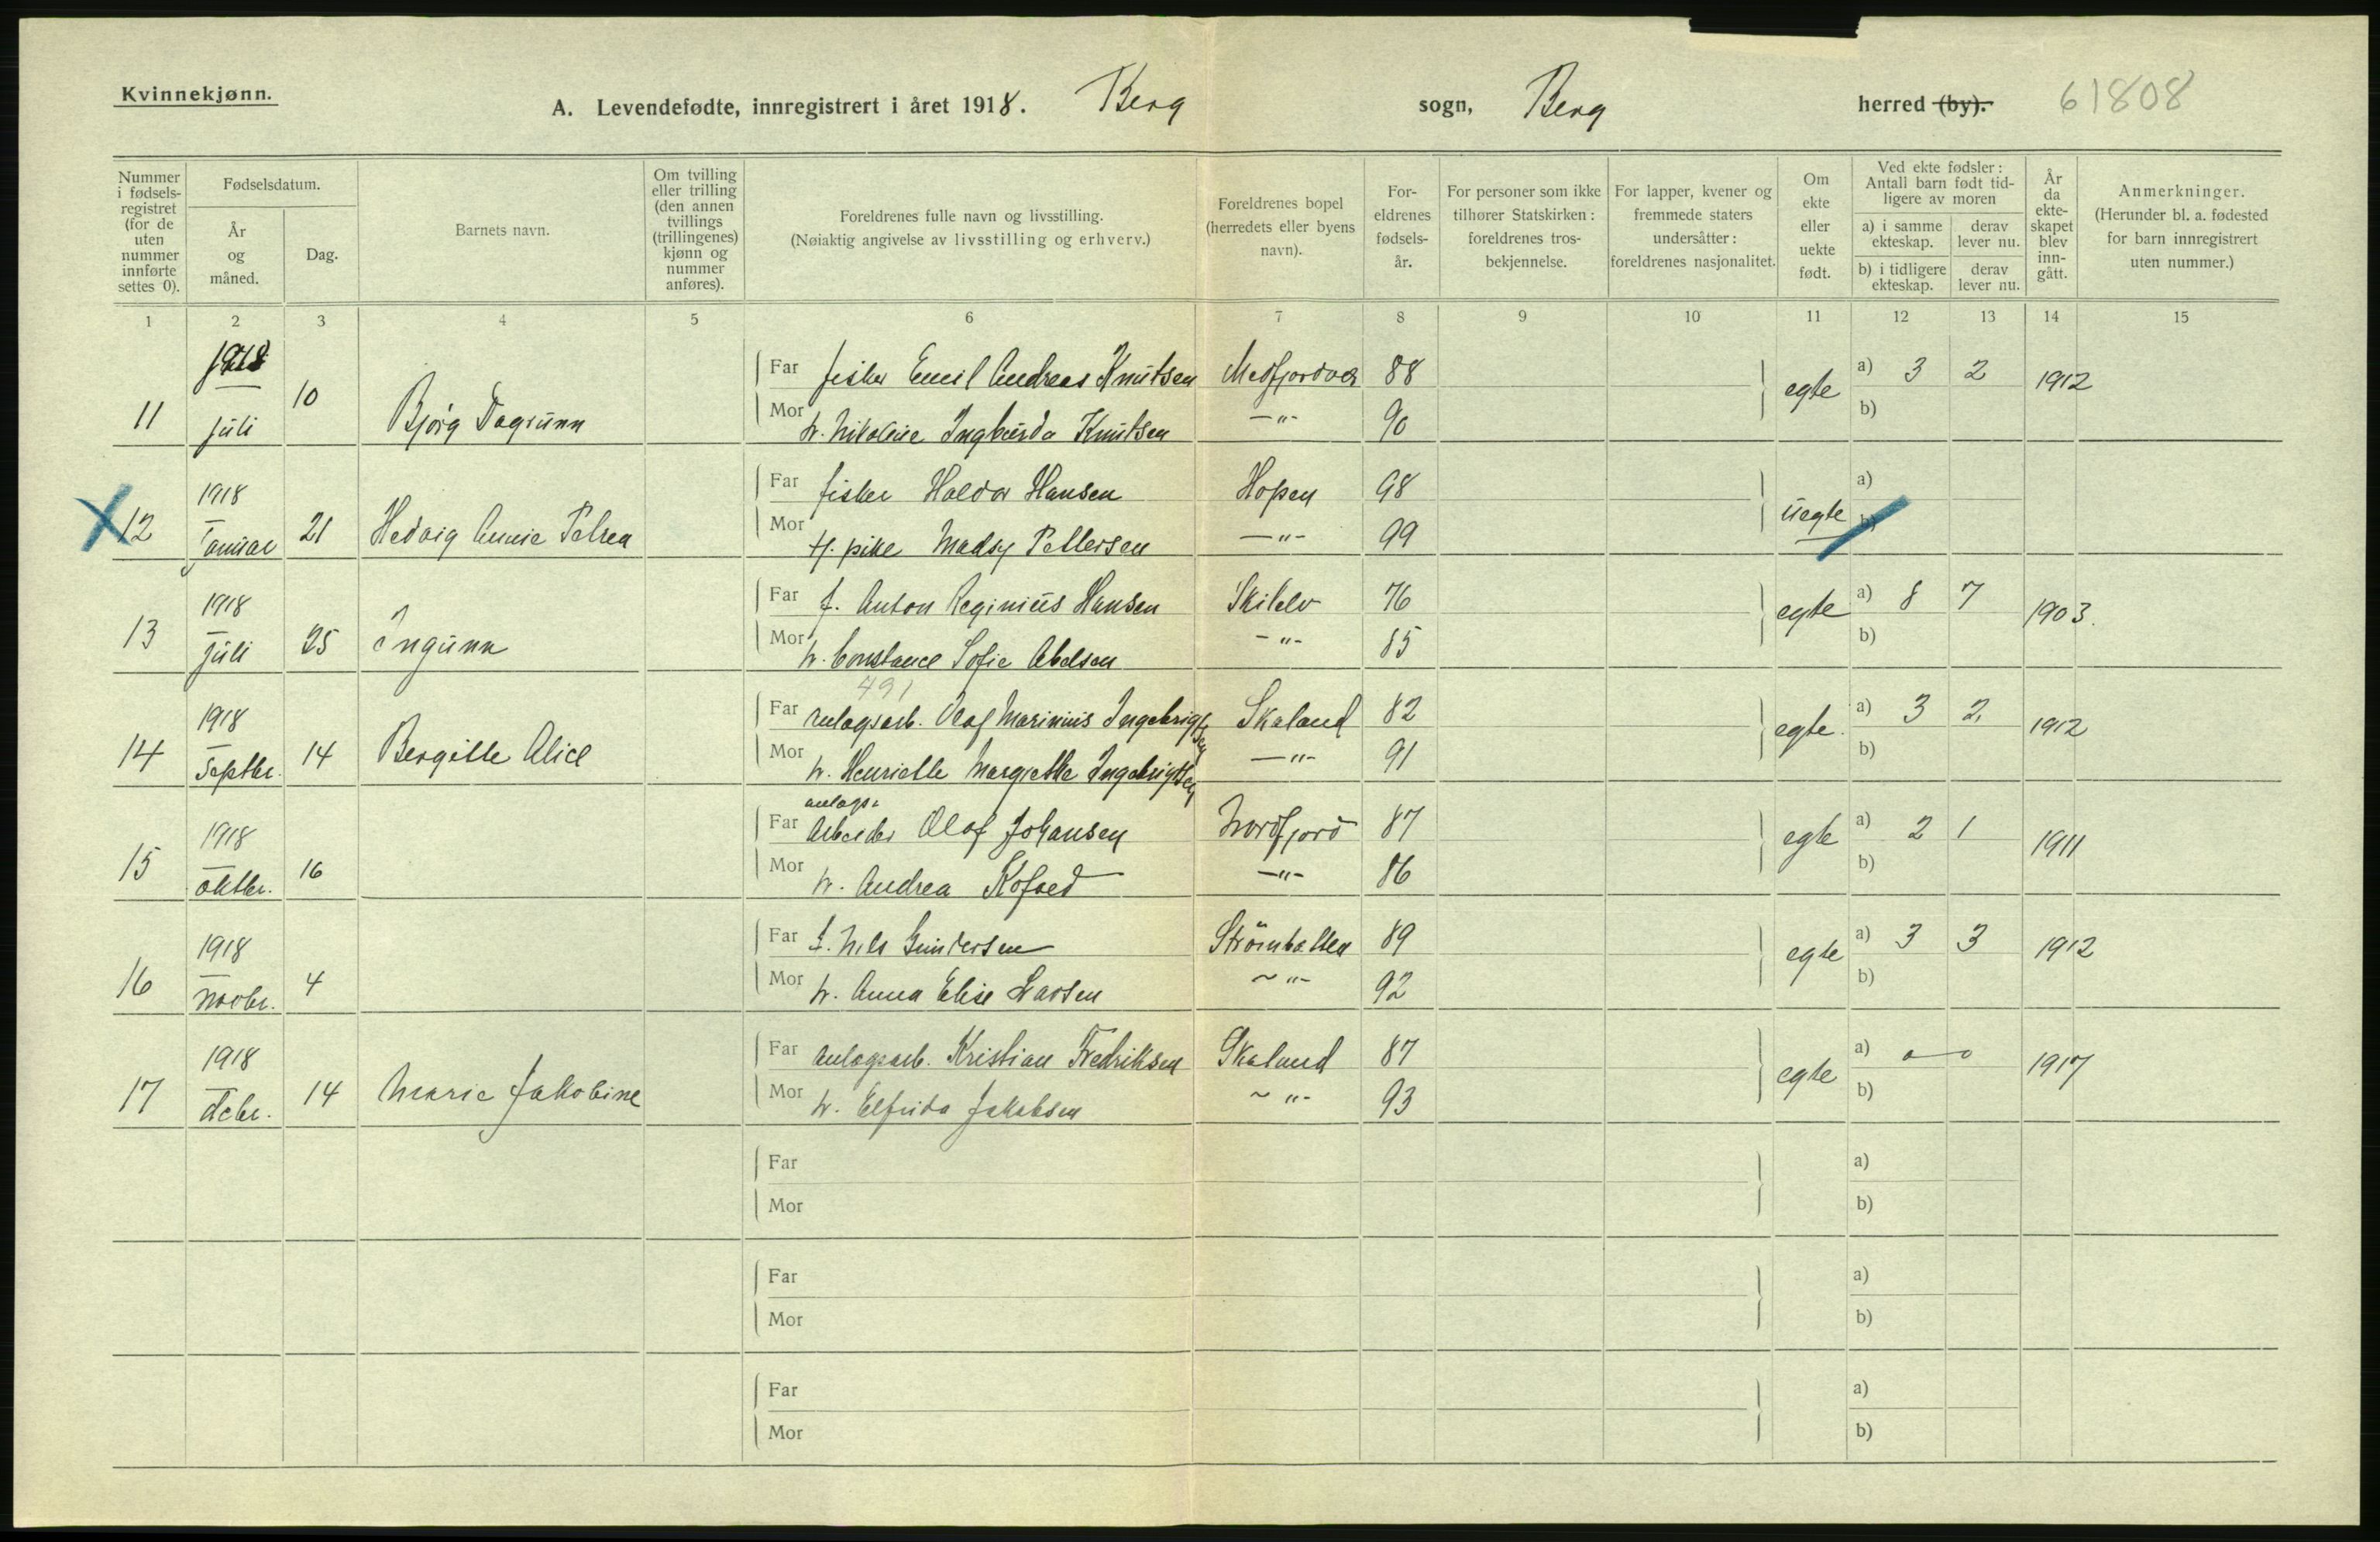 Kvinnekjønn.
A. Levendefødte, innregistrert i året 1918. Berg sogn, Berg herred (by). 61808
Nummer i fødsels-registret (for de uten nummer innførte settes 0).
Fødselsdatum.
År og måned.
Dag.
Barnets navn.
Om tvilling eller trilling (den annen tvillings (trillingenes) kjønn og nummer anføres).
Foreldrenes fulle navn og livsstilling.
(Nøiaktig angivelse av livsstilling og erhverv.)
Foreldrenes bopel (herredets eller byens navn).
For-eldrenes fødsels-år.
For personer som ikke tilhører Statskirken: foreldrenes tros-bekjennelse.
For lapper, kvener og fremmede staters undersåtter: foreldrenes nasjonalitet.
Om ekte eller uekte født.
Ved ekte fødsler: Antall barn født tid-ligere av moren
a) i samme ekteskap.
derav lever nu.
b) i tidligere ekteskap.
derav lever nu.
År da ekte-skapet blev inn-gått.
Anmerkninger.
(Herunder bl. a. fødested for barn innregistrert uten nummer.)
1 2 3 4 5 6 7 8 9 10 11 12 13 14 15
1918
Far fisker Emil Andreas Knutsen Medfjordvær 88 a) 3 2
11 juli 10 Bjørg Dagrunn egte 1912
Mor h. Nikoline Ingburda Knutsen —"- 90 b)
1918
Far fisker Haldor Hansen Hopen 98 a)
X 12 Januar 21 Hedvig Annie Petrea uegte
Mor tj. pike Madsy Pettersen —"- 99 b)
1918
Far f. Anton Reginius Hansen Skilelv 76 a) 8 7
13 juli 25 Ingunn egte 1903.
Mor h. Constance Sofie Abelsen -"- 85 b)
491
1918
Far anlagsarb. Olaf Marinius Ingebrigtsen Skaland 82 a) 3 2
14 Septbr. 14 Bergitte Alice egte. 1912
Mor h. Henriette Margrethe Ingebrigtsen —"- 91 b)
1918
anlags-
Far arbeider Olaf Johansen Nordfjord 87 a) 2 1
15 oktbr. 16 egte 1911
Mor h. Andrea Kofoed —"- 86 b)
1918
Far f. Nils Gundersen Strømbotten 89 a) 3 3
16 novbr. 4 egte 1912
Mor h. Anna Elise Larsen ~"- 92 b)
1918
Far anlagsarb. Kristian Fredriksen Skaland 87 a) o—o
17 decbr. 14 Marie Jakobine egte 1917
Mor h. Elfrida Jakobsen ~"- 93 b)
Far a)
Mor b)
Far a)
Mor b)
Far a)
Mor b)